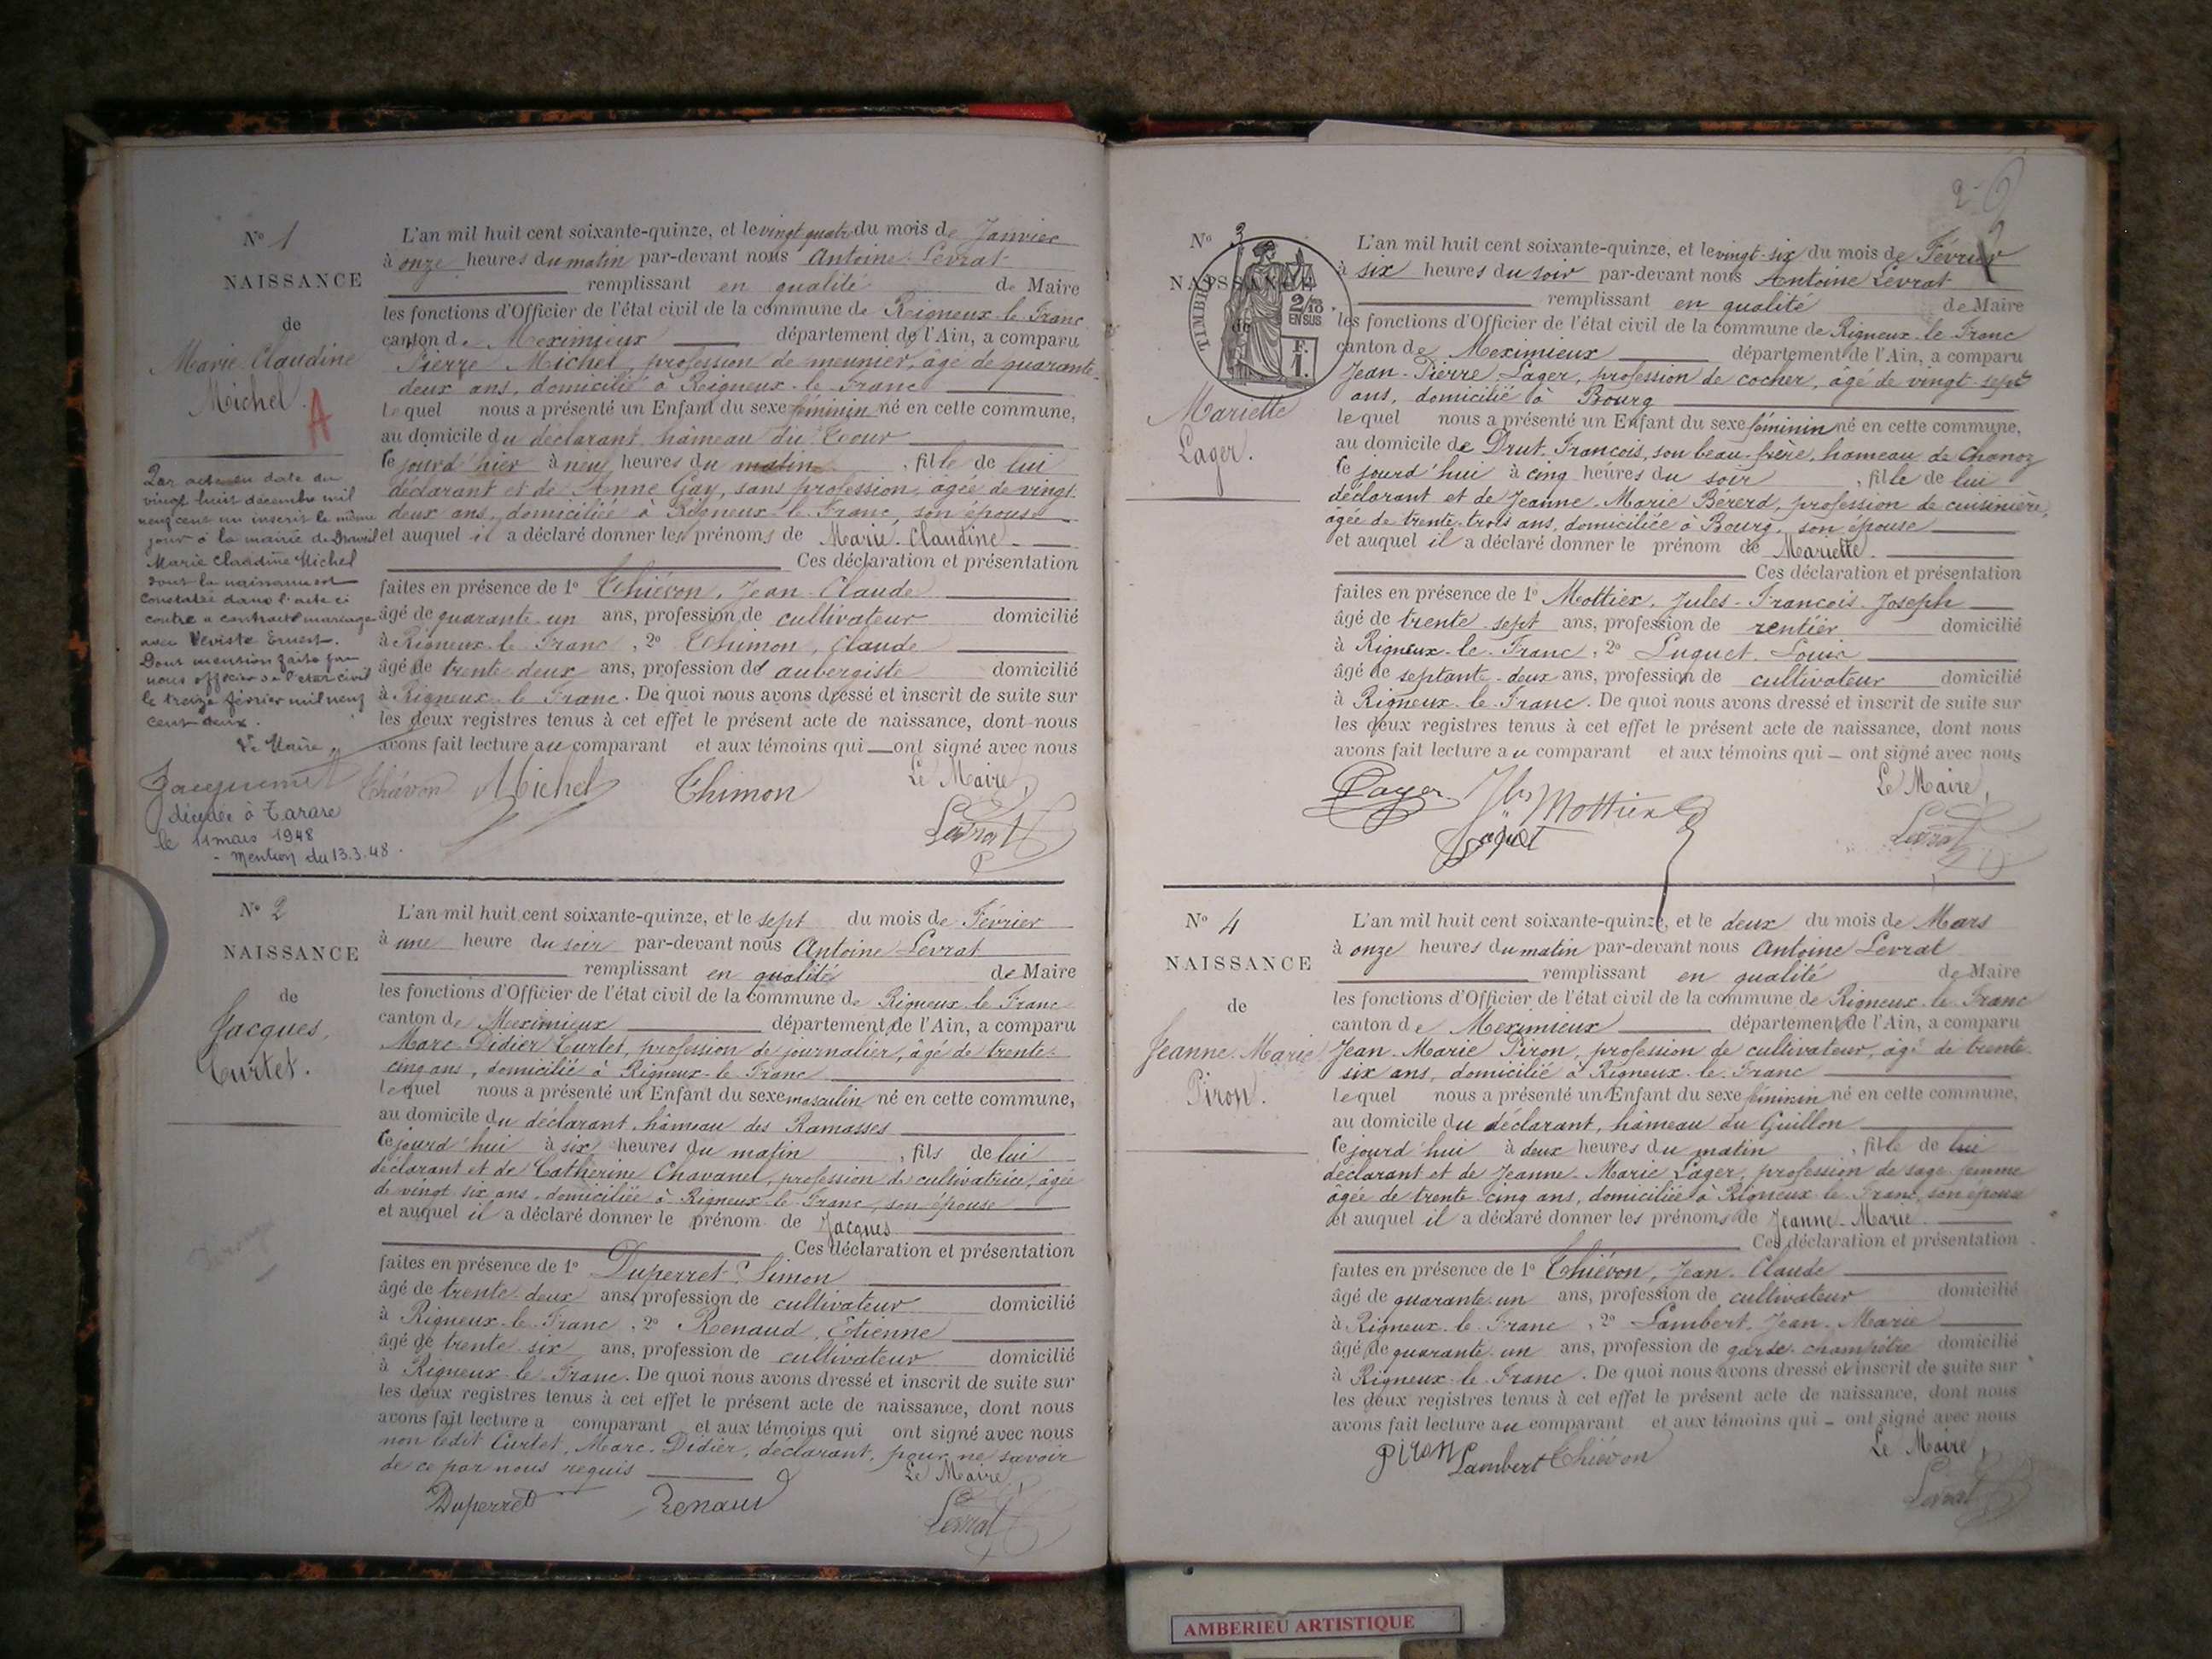 N° 1
NAISSANCE
de
Marie Claudine
Michel.
A
Par acte en date du
vingt huit décembre mil
neuf cent un inscrit le même
jour à la mairie de
Marie Claudine Michel
dont la naissance est
constatée dans l'acte ci
contre a contracté mariage
avec Ernest.
Dont mention faite par
nous officier de l'état civil
le treize février mil neuf
cent deux.
Le Maire
Jacquemet
décédée à Tarare
le 11 mars 1948
- Mention du 13.3.48.
L'an mil huit cent soixante-quinze, et le vingt quatre du mois de Janvier
à onze heures du matin par-devant nous Antoine Levrat
remplissant en qualité de Maire
les fonctions d'Officier de l'état civil de la commune de Rigneux-le-Franc
canton de Meximieux département de l'Ain, a comparu
Pierre Michel, profession de meunier, âgé de quarante-
deux ans, domicilié à Rigneux-le-Franc
Lequel nous a présenté un Enfant du sexe féminin né en cette commune,
au domicile du déclarant, hâmeau du
le jourd'hier à neuf heures du matin, fille de lui
déclarant et de Anne Gay, sans profession, agée de vingt
deux ans, domiciliée à Rigneux-le-Franc, son épouse
et auquel il a déclaré donner les prénoms de Marie-Claudine.
Ces déclaration et présentation
faites en présence de 1° Thiévon, Jean-Claude
âgé de quarante-un ans, profession de cultivateur domicilié
à Rigneux-le-Franc, 2° Thimon, Claude
âgé de trente deux ans, profession de aubergiste domicilié
à Rigneux-le-Franc. De quoi nous avons dressé et inscrit de suite sur
les deux registres tenus à cet effet le présent acte de naissance, dont nous
avons fait lecture au comparant et aux témoins qui — ont signé avec nous
Thiévon Michel Thimon Le Maire,
Levrat
N° 2
NAISSANCE
de
Jacques,
Curtet.
L'an mil huit cent soixante-quinze, et le sept du mois de Février
à une heure du soir par-devant nous Antoine Levrat
remplissant en qualité de Maire
les fonctions d'Officier de l'état civil de la commune de Rigneux-le-Franc
canton de Meximieux département de l'Ain, a comparu
Marc-Didier Curtet, profession de journalier, âgé de trente-
cinq ans, domicilié à Rigneux-le-Franc
lequel nous a présenté un Enfant du sexe masculin né en cette commune,
au domicile du déclarant, hâmeau des Ramasses
le jourd'hui à six heures du matin, fils de lui
déclarant et de Catherine Chavanel, profession de cultivatrice, âgée
de vingt six ans, domiciliée à Rigneux-le-Franc, son épouse
et auquel il a déclaré donner le prénom de Jacques
Ces déclaration et présentation
faites en présence de 1° Duperret, Simon
âgé de trente-deux ans, profession de cultivateur domicilié
à Rigneux-le-Franc, 2° Renaud, Etienne
âgé de trente-six ans, profession de cultivateur domicilié
à Rigneux-le-Franc. De quoi nous avons dressé et inscrit de suite sur
les deux registres tenus à cet effet le présent acte de naissance, dont nous
avons fait lecture a comparant et aux témoins qui ont signé avec nous
non ledit Curtet, Marc-Didier, déclarant, pour ne savoir
de ce par nous requis
Le Maire,
Duperret Renaud Levrat
2
N° 3
NAISSANCE
de
TIMBRE
2/10
EN SUS
F.
1.
Mariette
Lager.
L'an mil huit cent soixante-quinze, et le vingt-six du mois de Février
à six heures du soir par-devant nous Antoine Levrat
remplissant en qualité de Maire
les fonctions d'Officier de l'état civil de la commune de Rigneux-le-Franc
canton de Meximieux département de l'Ain, a comparu
Jean-Pierre Lager, profession de cocher, âgé de vingt-sept
ans, domicilié à Bourg
lequel nous a présenté un Enfant du sexe féminin né en cette commune,
au domicile de Drut François, son beau-frère, hameau de Chanoz
le jourd'hui à cinq heures du soir, fille de lui
déclarant et de Jeanne-Marie Bérerd, profession de cuisinière,
âgée de trente-trois ans, domiciliée à Bourg, son épouse
et auquel il a déclaré donner le prénom de Mariette.
Ces déclaration et présentation
faites en présence de 1° Mottier, Jules-François-Joseph
âgé de trente-sept ans, profession de rentier domicilié
à Rigneux-le-Franc, 2° Luquet Louis
âgé de septante-deux ans, profession de cultivateur domicilié
à Rigneux-le-Franc. De quoi nous avons dressé et inscrit de suite sur
les deux registres tenus à cet effet le présent acte de naissance, dont nous
avons fait lecture au comparant et aux témoins qui — ont signé avec nous
Le Maire,
Lager Jles Mottier
Luquet Levrat
N° 4
NAISSANCE
de
Jeanne-Marie
Piron.
L'an mil huit cent soixante-quinze, et le deux du mois de Mars
à onze heures du matin par-devant nous Antoine Levrat
remplissant en qualité de Maire
les fonctions d'Officier de l'état civil de la commune de Rigneux-le-Franc
canton de Meximieux département de l'Ain, a comparu
Jean-Marie Piron, profession de cultivateur, âgé de trente
six ans, domicilié à Rigneux-le-Franc
lequel nous a présenté un Enfant du sexe féminin né en cette commune,
au domicile du déclarant, hâmeau du Guillon
le jourd'hui à deux heures du matin, fille de lui
déclarant et de Jeanne-Marie Lager, profession de sage-femme
âgée de trente-cinq ans, domiciliée à Rigneux-le-Franc, son épouse
et auquel il a déclaré donner les prénoms de Jeanne-Marie
Ces déclaration et présentation
faites en présence de 1° Thiévon, Jean-Claude
âgé de quarante-un ans, profession de cultivateur domicilié
à Rigneux-le-Franc, 2° Lambert, Jean-Marie
âgé de quarante-un ans, profession de garde-champêtre domicilié
à Rigneux-le-Franc. De quoi nous avons dressé et inscrit de suite sur
les deux registres tenus à cet effet le présent acte de naissance, dont nous
avons fait lecture au comparant et aux témoins qui — ont signé avec nous
Piron Lambert Thiévon Le Maire,
Levrat
AMBERIEU ARTISTIQUE